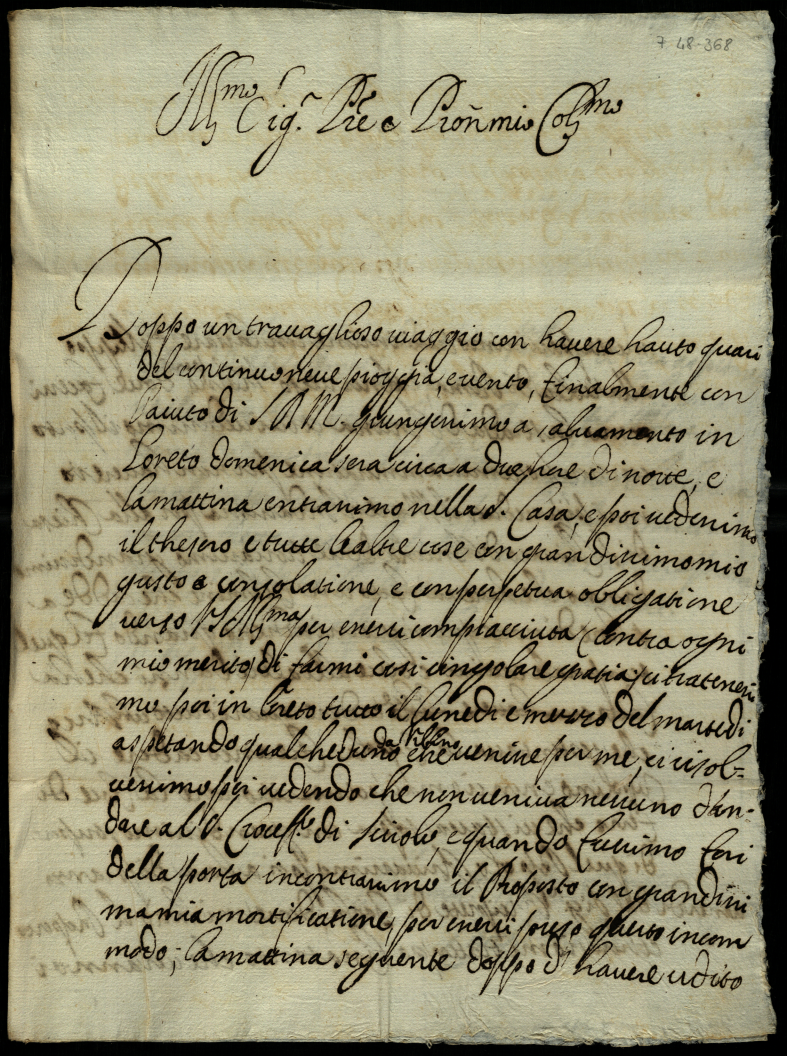 7 48-368
Ill.mo Sig.r Pre e Proñ mio Col.mo
Doppo un travaglioso viaggio con havere hauto quasi
del continuo neve pioggia, e vento, finalmente con
l'aiuto di S.A.M. giungessimo a salvamento in
Loreto domenica sera circa a due hore di notte, e
la mattina entrassimo nella S. Casa, e poi vedessimo
il thesoro e tutte le altre cose con grandissimo mio
gusto e consolatione, e con perpetua obligatione
verso V.S. Ill.ma per essersi compiacciuta (contra ogni
mio merito) di farmi così singolare gratia, ci trattenessi
mo poi in Loreto tutto il lunedi e mezzo del martedi
aspetando qualcheduno che venisse per me, ci risol=
vessimo poi vedendo che non veniva nessuno d'an-
dare al S. Croceff.o di Sirolo, e quando fussimo fori
della porta incontrassimo il Proposto con grandissi
ma mia mortificatione, per essersi preso questo incom
modo; la mattina seguente doppo d'havere udito